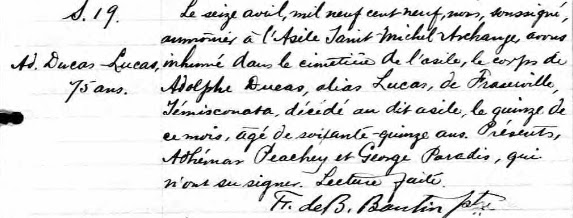 S. 19.
Ad. Ducas-Lucas,
75 ans.
Le seize avril, mil neuf cent neuf, nous, soussigné,
aumônier à l'Asile Saint Michel Archange, avons
inhumé dans le cimetière de l'asile, le corps de
Adolphe Ducas, alias Lucas, de Fraserville,
Témisconata, décédé au dit asile, le quinze de
ce mois, âgé de soixante-quinze ans. Présents,
Adhémar Peachey et George Paradis, qui
n'ont su signer. Lecture faite.
Fr. de B. Boutin ptre